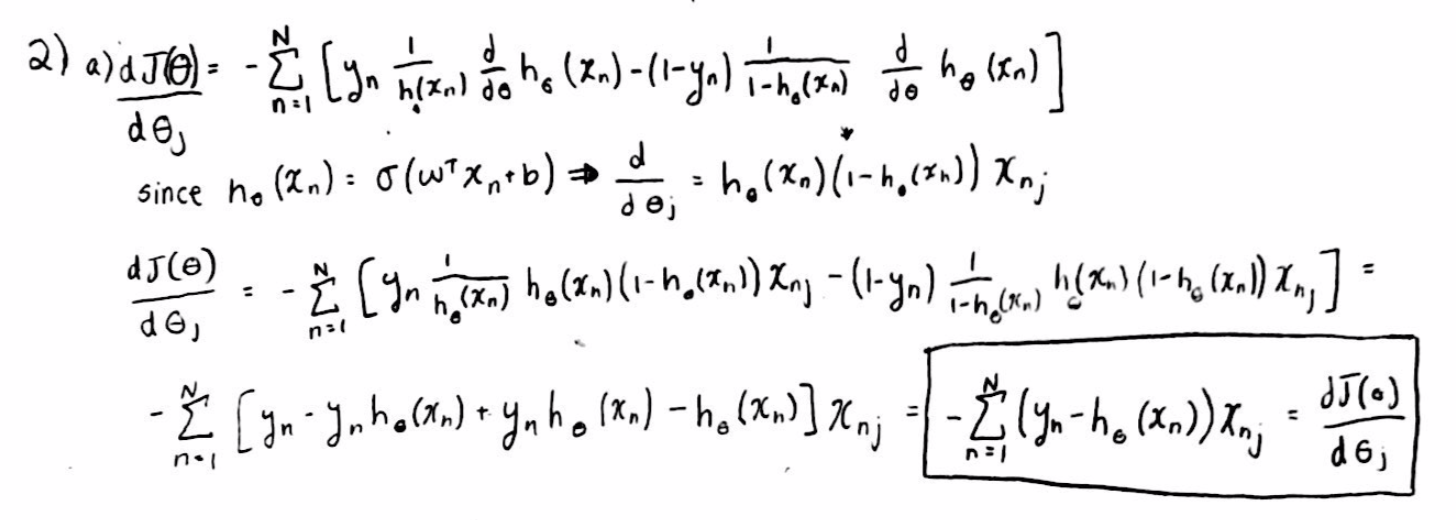 2) a) dJ(θ)/dθⱼ = - Σₙ₌₁ᴺ [yₙ 1/h_θ(xₙ) d/dθ h_θ(xₙ) - (1-yₙ) 1/(1-h_θ(xₙ)) d/dθ h_θ(xₙ)]
since h_θ(xₙ) = σ(wᵀxₙ+b) ⇒ d/dθⱼ = h_θ(xₙ)(1-h_θ(xₙ)) xₙⱼ
dJ(θ)/dθⱼ = - Σₙ₌₁ᴺ [yₙ 1/h_θ(xₙ) h_θ(xₙ)(1-h_θ(xₙ)) xₙⱼ - (1-yₙ) 1/(1-h_θ(xₙ)) h_θ(xₙ)(1-h_θ(xₙ)) xₙⱼ] =
- Σₙ₌₁ᴺ [yₙ - yₙh_θ(xₙ) + yₙh_θ(xₙ) - h_θ(xₙ)] xₙⱼ = - Σₙ₌₁ᴺ (yₙ - h_θ(xₙ)) xₙⱼ = dJ(θ)/dθⱼ